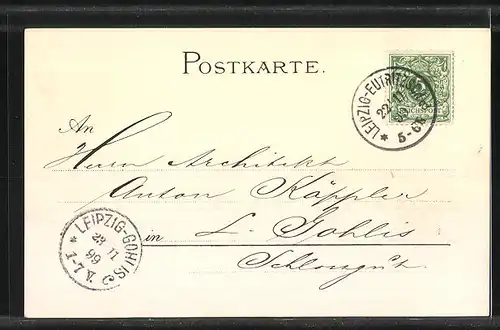 POSTKARTE.
LEIPZIG-EUTRITZSCH
22 11
5-6N
An
Herrn Architekt
Anton Käppler
in L. Gohlis
Schlossgut
* LEIPZIG-GOHLIS
23 11
99
1-7 V.